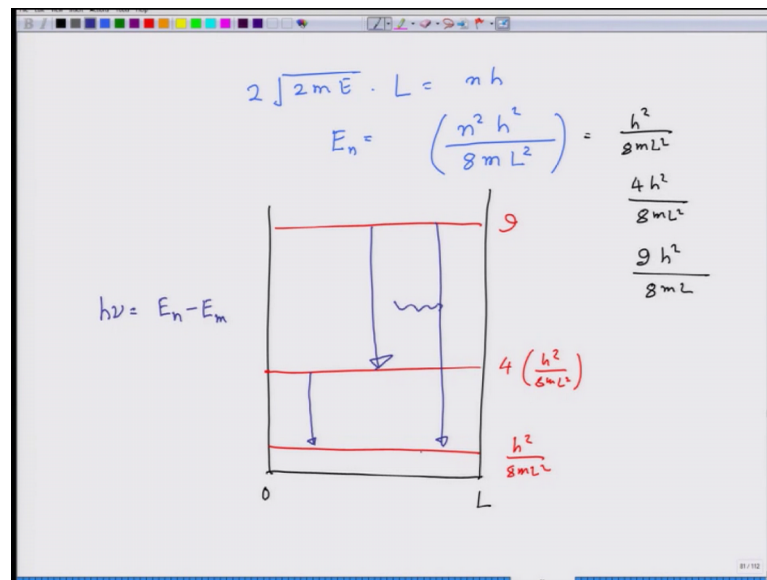 2√(2mE) . L = nh
E_n = (n² h² / 8 m L²) = h² / 8mL²
4 h² / 8mL²
9 h² / 8mL
9
hν = E_n − E_m
4 (h² / 8mL²)
h² / 8mL²
0 L
81 / 112